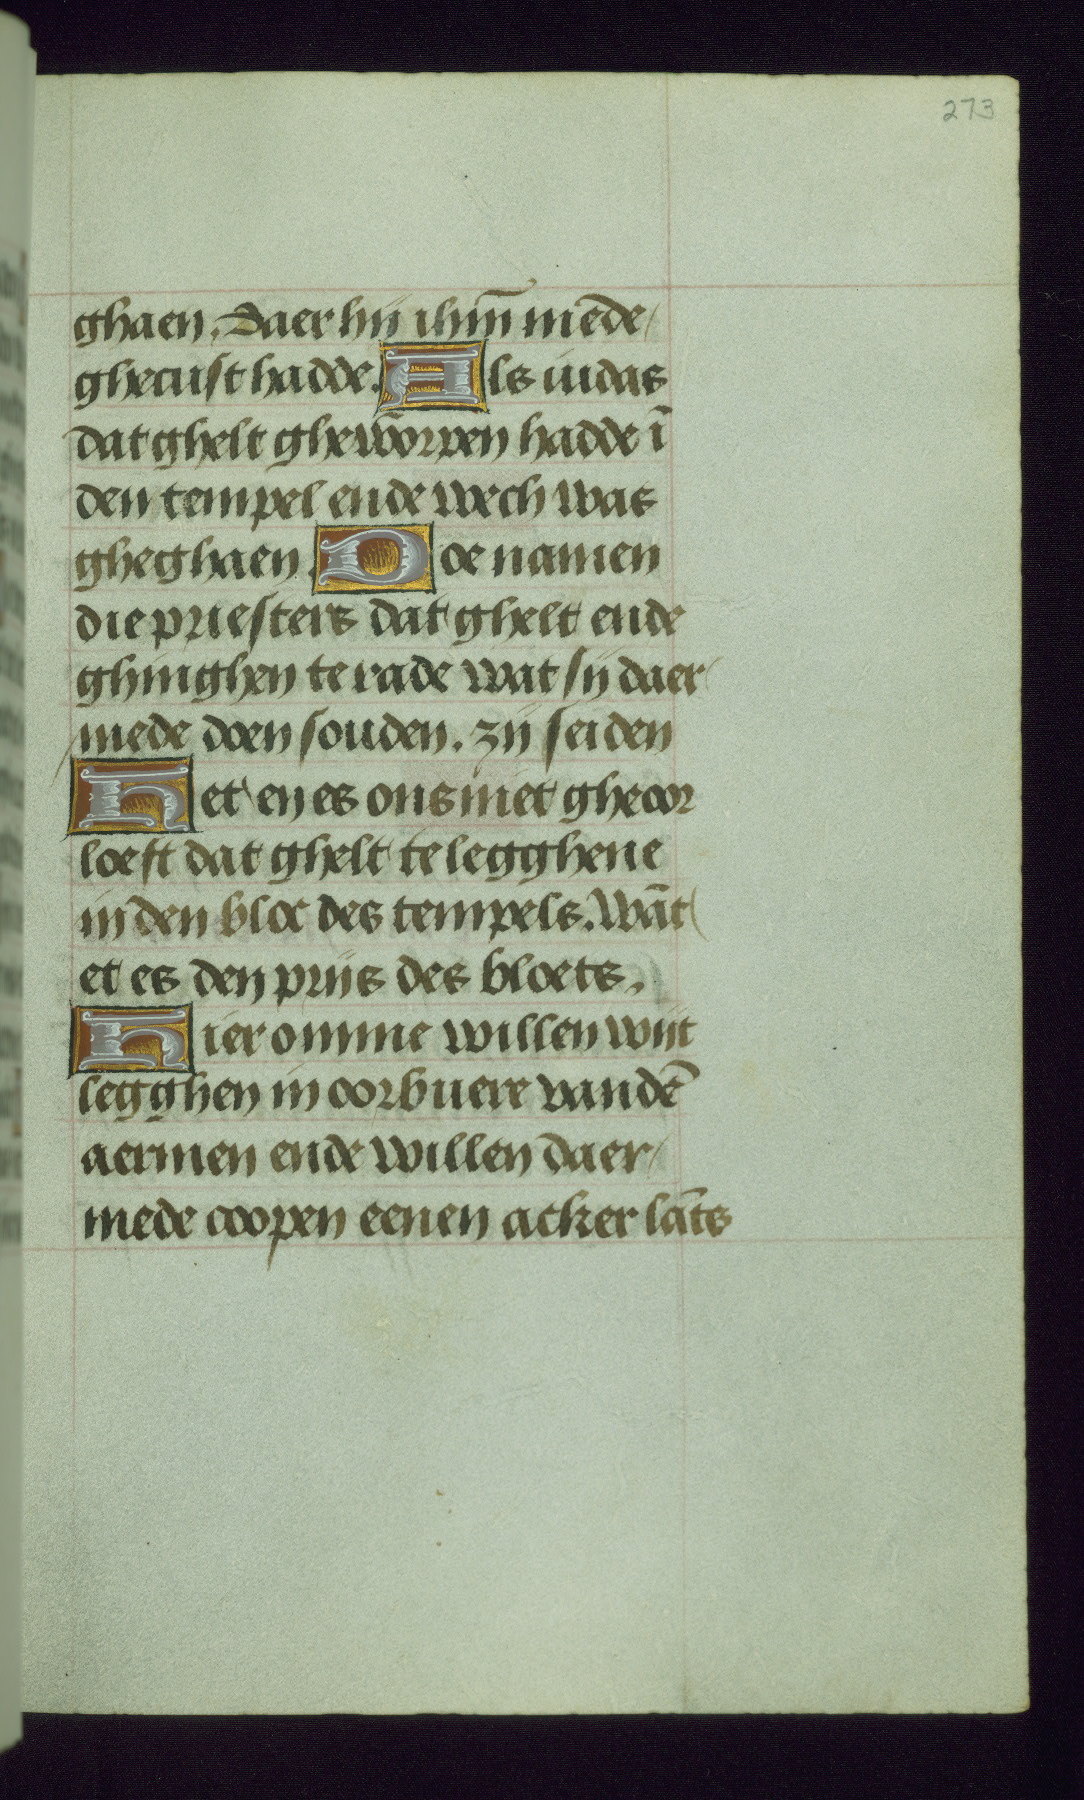 273
ghaen. Daer hij ihm̄ mede
ghecust hadde. Als iudas
dat ghelt gheworpen hadde ī
den tempel ende wech was
gheghaen. Doe namen
die priesters dat ghelt ende
ghinghen te rade wat sij daer
mede doen souden. zij seiden
Het en es ons niet gheoor
loeft dat ghelt te legghene
in den bloc des tempels. Wāt
et es den prijs des bloets.
Hier omme willen wijt
legghen in oorbuere van dē
aermen ende willen daer
mede coopen eenen acker lāts